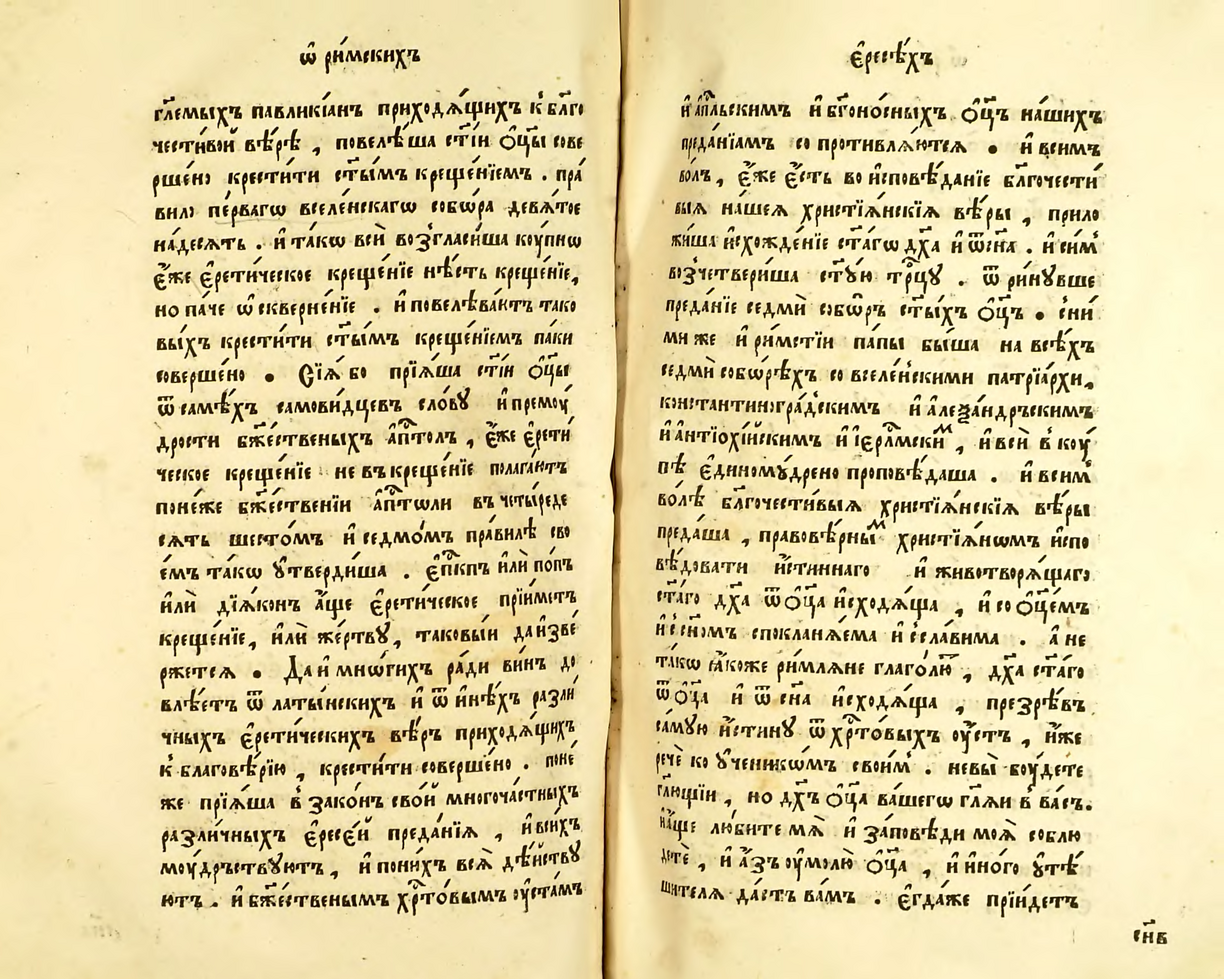 ѡ҆ ри́мскихъ
гл҃емыхъ павликїа́нъ приходѧ́щихъ к̾ бл҃го
чести́вой вѣ́рѣ , повелѣ́ша ст҃і́и ѻ҆ц҃ы сове
рше́но крести́ти ст҃ы́мъ креще́нїемъ . пра́
вило пе́рвагѡ вселе́нскагѡ собѡ́ра девѧ́тое
на́десѧть . и҆ та́кѡ всѝ возгласи́ша коу́пнѡ
є҆́же є҆рети́ческое креще́нїе нѣ́сть креще́нїе,
но па́че ѡ҆скверне́нїе . и҆ повелѣва́ютъ тако
вы́хъ крести́ти ст҃ы́мъ креще́нїемъ па́ки
соверше́но • Сїѧ̀ бо прїѧ́ша ст҃і́и ѻ҆ц҃ы
ѿ самѣ́хъ самови́дцевъ сло́вꙋ и҆ премоу́
дрости бж҃е́ственыхъ а҆пⷭ҇толъ , є҆́же є҆рети́
ческое креще́нїе не въ креще́нїе полага́ютъ
поне́же бж҃е́ственїи а҆пⷭ҇толи въ четы́реде
сѧть шесто́мъ и҆ седмо́мъ пра́вилѣ сво
е́мъ та́кѡ ᲂу҆тверди́ша . є҆пⷭ҇кпъ и҆лѝ по́пъ
и҆лѝ дїѧ́конъ а҆́ще є҆рети́ческое прїи́метъ
креще́нїе, и҆лѝ же́ртвꙋ, таковы́и да и҆зве́
ржетсѧ • Да и҆ мнѡ́гихъ ра́ди ви́нъ до
влѣ́етъ ѿ латы́нскихъ и҆ ѿ и҆нѣ́хъ разли́
чныхъ є҆рети́ческихъ вѣ́ръ приходѧ́щихъ
к̾ благовѣ́рїю , крести́ти соверше́но . поне́
же прїѧ́ша в̾ зако́нъ сво́й многоча́стныхъ
разли́чныхъ є҆ресе́й преда́нїѧ , и҆ в си́хъ
моу́дръствꙋютъ , и҆ по ни́хъ всѧ̀ дѣ́йствꙋ
ютъ . и҆ бж҃е́ственымъ хрⷭ҇то́вымъ ᲂу҆ста́мъ
є҆ресѣ́хъ
и҆ а҆пⷭ҇льскимъ и҆ бг҃оно́сныхъ ѻ҆ц҃ъ на́шихъ
преда́нїамъ сопротивлѧ́ютсѧ • и҆ всимъ
волъ , є҆́же є҆́сть во и҆сповѣ́данїе бл҃гочести́
выѧ на́шеѧ христїѧ́нскїѧ вѣ́ры , прило
жи́ша и҆схожде́нїе ст҃а́гѡ дх҃а и҆ ѿ сн҃а . и҆ си́мъ
возчетвери́ша ст҃ꙋ́ю трⷪ҇цꙋ . ѿринꙋ́вше
преда́нїе седмѝ собѡ́ръ ст҃ы́хъ ѻ҆ц҃ъ • с ни́
ми же и҆ ри́мстїи па́пы бы́ша на всѣ́хъ
седмѝ собѡ́рѣхъ со вселе́нскими патрїа́рхи,
константиногра́дскимъ и҆ а҆леѯа́ндръскимъ
и҆ а҆нтїохі́йскимъ и҆ і҆ерⷭ҇лмскиⷨ , и҆ всѝ в̾ коу́
пѣ є҆диномꙋ́дрено проповѣ́даша . и҆ всимъ
волѣ бл҃гочести́выѧ христїѧ́нскїѧ вѣ́ры
преда́ша , правовѣ́рныⷨ христїѧ́нѡмъ и҆спо
вѣ́довати и҆́стиннаго и҆ животворѧ́щаго
ст҃а́го дх҃а ѿ ѻ҆ц҃а и҆сходѧ́ща , и҆ со ѻ҆ц҃е́мъ
и҆ с сн҃омъ спокланѧ́ема и҆ ссла́вима . а҆ не
та́кѡ ꙗ҆́коже ри́млѧне глаго́лютъ, дх҃а ст҃а́го
ѿ ѻ҆ц҃а и҆ ѿ сн҃а и҆сходѧ́ща , презрѣ́въ
са́мꙋю и҆́стинꙋ ѿ хрⷭ҇то́выхъ ᲂу҆́стъ , и҆́же
речѐ ко ᲂу҆ченикѡ́мъ свои́мъ . не вы̀ боу́дете
гл҃ющїи , но дх҃ъ ѻ҆ц҃а ва́шегѡ гл҃ѧи в̾ ва́съ.
и҆ а҆́ще лю́бите мѧ̀ и҆ за́повѣди моѧ̀ соблю
дете̑ , и҆ а҆́зъ ᲂу҆молю̀ ѻ҆ц҃а , и҆ и҆но́го ᲂу҆тѣ́
шителѧ да́стъ ва́мъ . є҆гда́же прїи́детъ
сн҃в